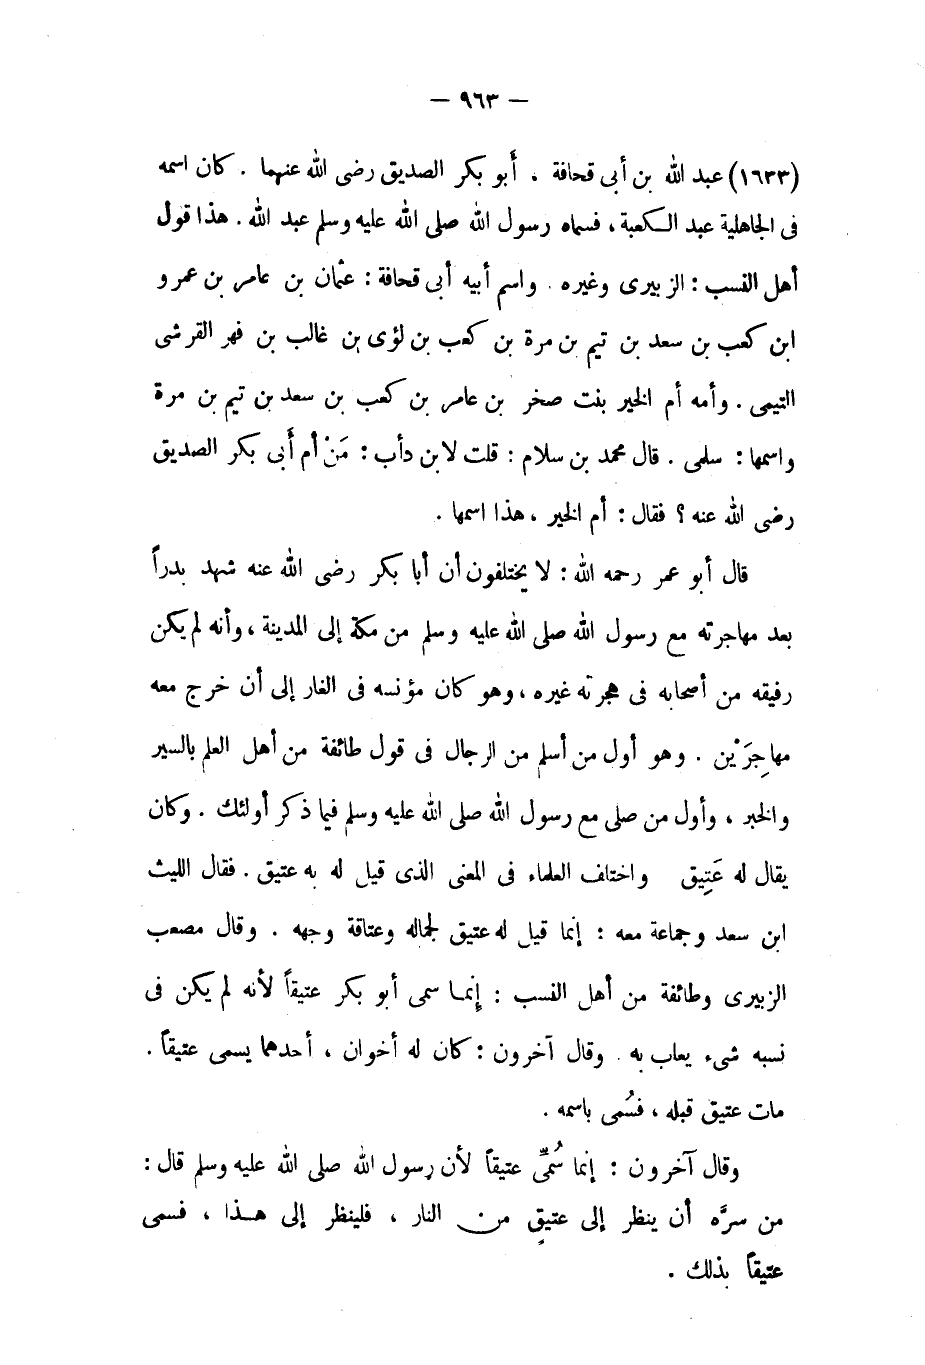 — ٩٦٣ —
(١٦٣٣) عبد الله بن أبى قحافة ، أَبو بكر الصديق رضى الله عنهما . كان اسمه
فى الجاهلية عبد الكعبة ، فسماه رسول الله صلى الله عليه وسلم عبد الله . هذا قول
أهل النسب : الزبيرى وغيره . واسم أبيه أبى قحافة : عثمان بن عامر بن عمرو
ابن كعب بن سعد بن تيم بن مرة بن كعب بن لؤى بن غالب بن فهر القرشى
التيمى . وأمه أم الخير بنت صخر بن عامر بن كعب بن سعد بن تيم بن مرة
واسمها : سلمى . قال محمد بن سلام : قلت لابن دأب : مَنْ أم أَبى بكر الصديق
رضى الله عنه ؟ فقال : أم الخير ، هذا اسمها .
قال أبو عمر رحمه الله : لا يختلفون أن أبا بكر رضى الله عنه شهد بدراً
بعد مهاجرته مع رسول الله صلى الله عليه وسلم من مكة إلى المدينة ، وأنه لم يكن
رفيقه من أصحابه فى هجرته غيره ، وهو كان مؤنسه فى الغار إلى أن خرج معه
مهاجِرَيْن . وهو أول من أسلم من الرجال فى قول طائفة من أهل العلم بالسير
والخبر ، وأول من صلى مع رسول الله صلى الله عليه وسلم فيما ذكر أولئك . وكان
يقال له عَتِيق واختلف العلماء فى المعنى الذى قيل له به عتيق . فقال الليث
ابن سعد وجماعة معه : إنما قيل له عتيق لجماله وعتاقة وجهه . وقال مصعب
الزبيرى وطائفة من أهل النسب : إِنما سمى أبو بكر عتيقاً لأنه لم يكن فى
نسبه شىء يعاب به . وقال آخرون : كان له أخوان ، أحدهما يسمى عتيقاً .
مات عتيق قبله ، فسُمى باسمه .
وقال آخرون : إنما سُمِّىَ عتيقاً لأن رسول الله صلى الله عليه وسلم قال :
من سرَّه أن ينظر إلى عتيقٍ من النار ، فلينظر إلى هذا ، فسمى
عتيقاً بذلك .